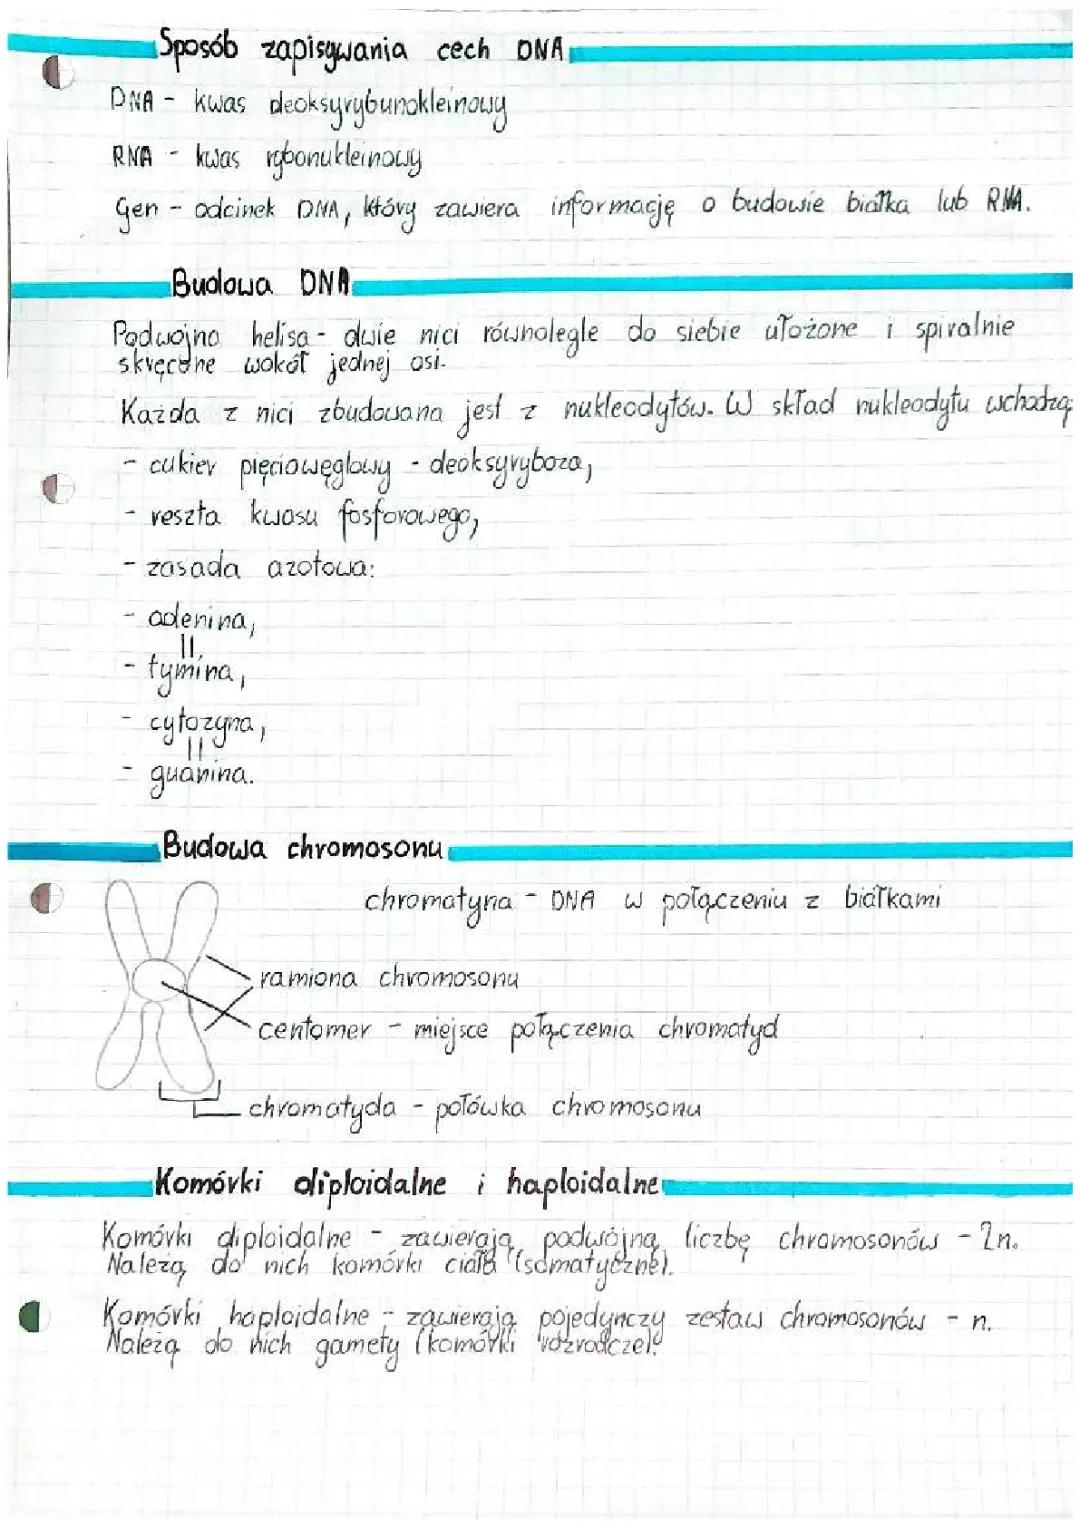 Sposób zapisywania cech DNA
DNA - kwas deoksyrybunokleinowy
RNA - kwas rybonukleinowy
Gen - odcinek DNA, który zawiera informację o budowie białka lub RNA.
Budowa DNA
Podwójna helisa - dwie nici równolegle do siebie ułożone i spiralnie
skręcone wokół jednej osi.
Każda z nici zbudowana jest z nukleodytów. W skład nukleodytu wchodzą:
- cukier pięciowęglowy - deoksyryboza,
- reszta kwasu fosforowego,
- zasada azotowa:
- adenina,
- tymina,
- cytozyna,
- guanina.
Budowa chromosonu
chromatyna - DNA w połączeniu z białkami
ramiona chromosonu
centomer - miejsce połączenia chromatyd
chromatyda - połówka chromosonu
Komórki diploidalne i haploidalne
Komórki diploidalne - zawierają podwójną liczbę chromosonów - 2n.
Należą do nich komórki ciała (somatyczne).
Komórki haploidalne - zawierają pojedynczy zestaw chromosonów - n.
Należą do nich gamety (komórki rozrodcze).